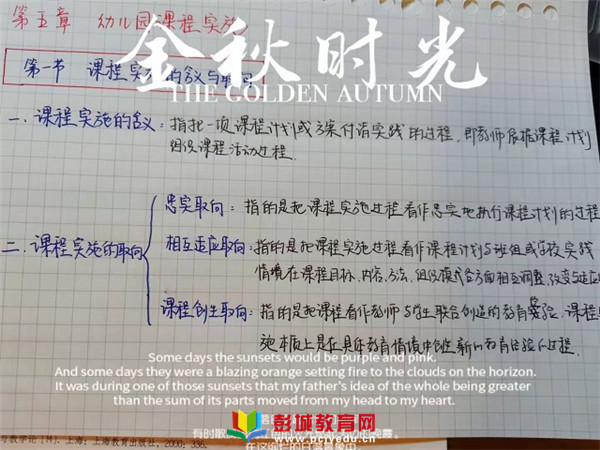 第五章 幼儿园课程实施
金秋时光
THE GOLDEN AUTUMN
第一节 课程实施的含义与取向
一、课程实施的含义：指把一项课程计划或方案付诸实践的过程，即教师依据课程计划
组织课程活动过程.
二、课程实施的取向
忠实取向：指的是把课程实施过程看作忠实地执行课程计划的过程
相互适应取向：指的是把课程实施过程看作课程计划与班组或学校实践
情境在课程目标、内容、方法、组织模式各方面相互调整、改变与适应
课程创生取向：指的是把课程看作教师与学生联合创造的教育经验，课程
施本质上是在具体教育情境中创生新的教育经验的过程.
Some days the sunsets would be purple and pink.
And some days they were a blazing orange setting fire to the clouds on the horizon.
It was during one of those sunsets that my father's idea of the whole being greater
than the sum of its parts moved from my head to my heart.
彭城教育网
www.pcjyedu.cn
教学论[M]. 上海：上海教育出版社，2000：336.
有时散